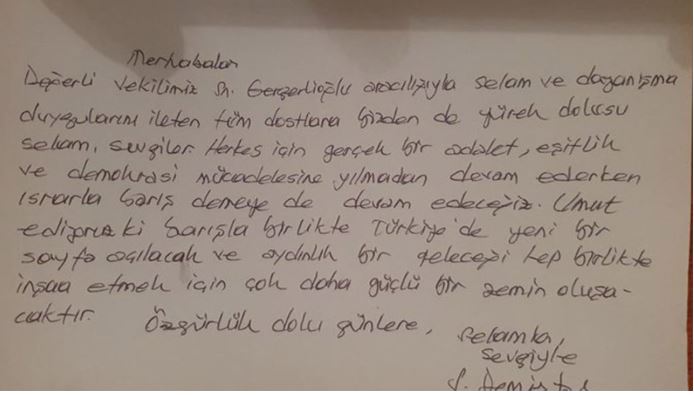 Merhabalar
Değerli Vekilimiz Sn. Gergerlioğlu aracılığıyla selam ve dayanışma
duygularını ileten tüm dostlara bizden de yürek dolusu
selam, sevgiler. Herkes için gerçek bir adalet, eşitlik
ve demokrasi mücadelesine yılmadan devam ederken
ısrarla barış demeye de devam edeceğiz. Umut
ediyoruz ki barışla birlikte Türkiye'de yeni bir
sayfa açılacak ve aydınlık bir geleceği hep birlikte
inşaa etmek için çok daha güçlü bir zemin oluşa-
caktır.
Özgürlük dolu günlere,
Selamla,
Sevgiyle
S. Demirtaş